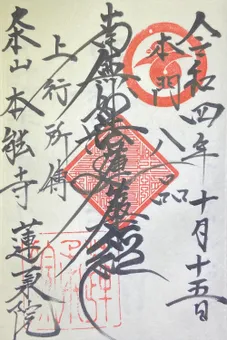 令和四年十月十五日
本門八品
南無妙法蓮華経
上行所傳
大本山本能寺蓮承院